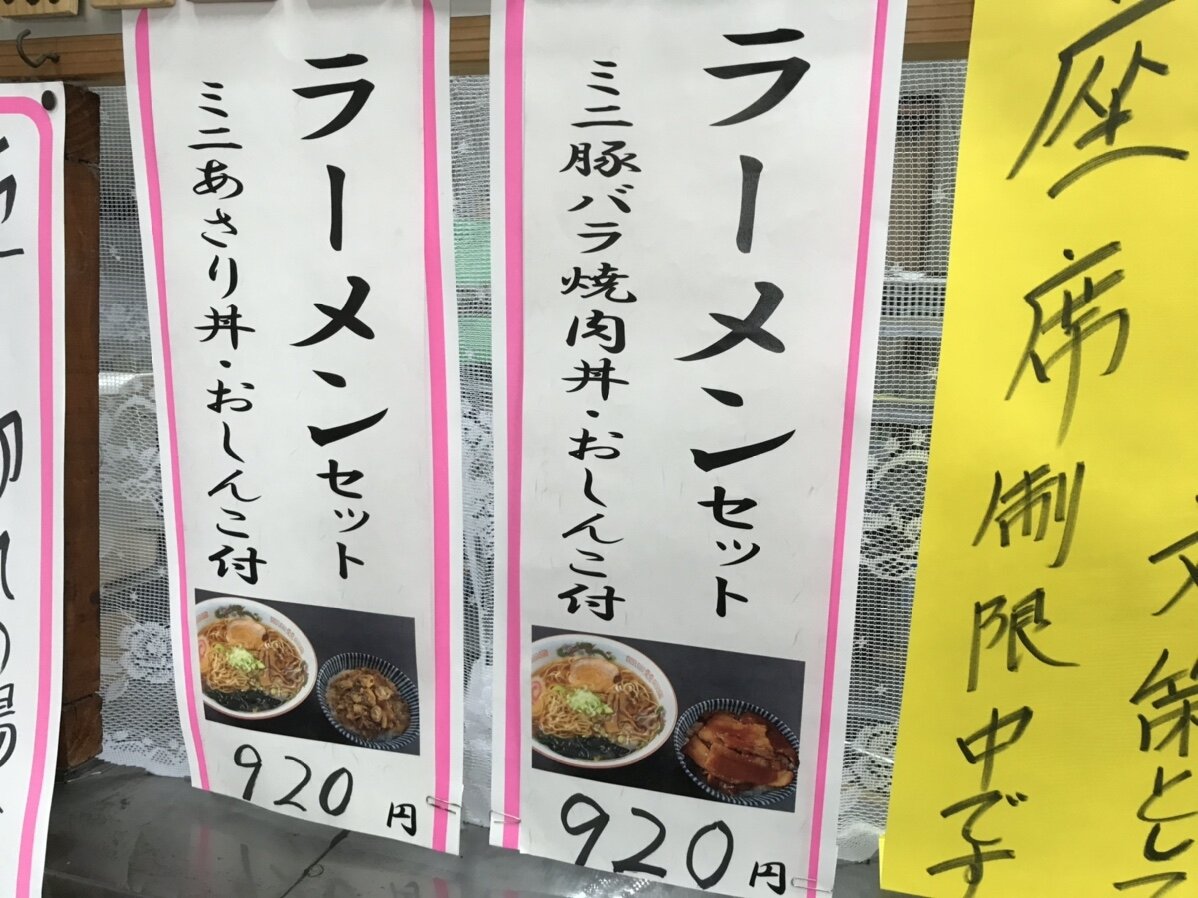 座
席
制
限
中です
策とし
ラーメンセット
ミニ豚バラ焼肉丼・おしんこ付
920円
ラーメンセット
ミニあさり丼・おしんこ付
920円